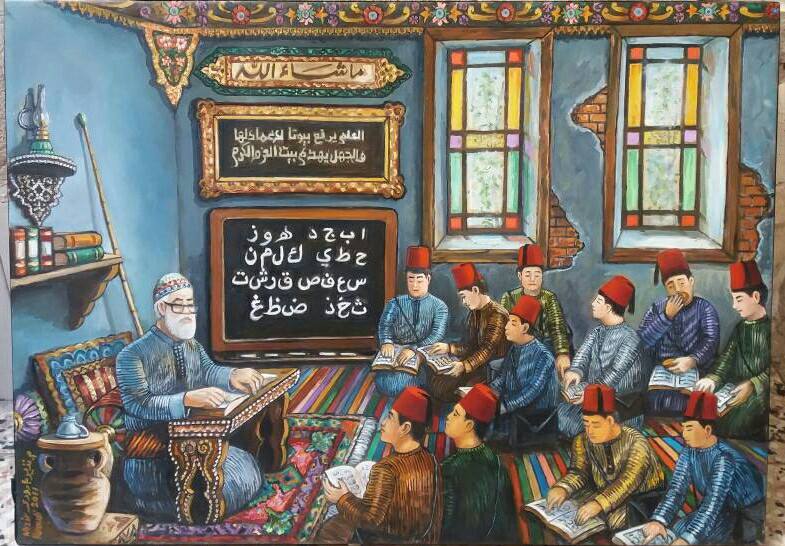 ماشاء الله
العلم يرفع بيوتا لا عماد لها
والجهل يهدم بيت العز والكرم
ابجد هوز
حطي كلمن
سعفص قرشت
ثخذ ضظغ